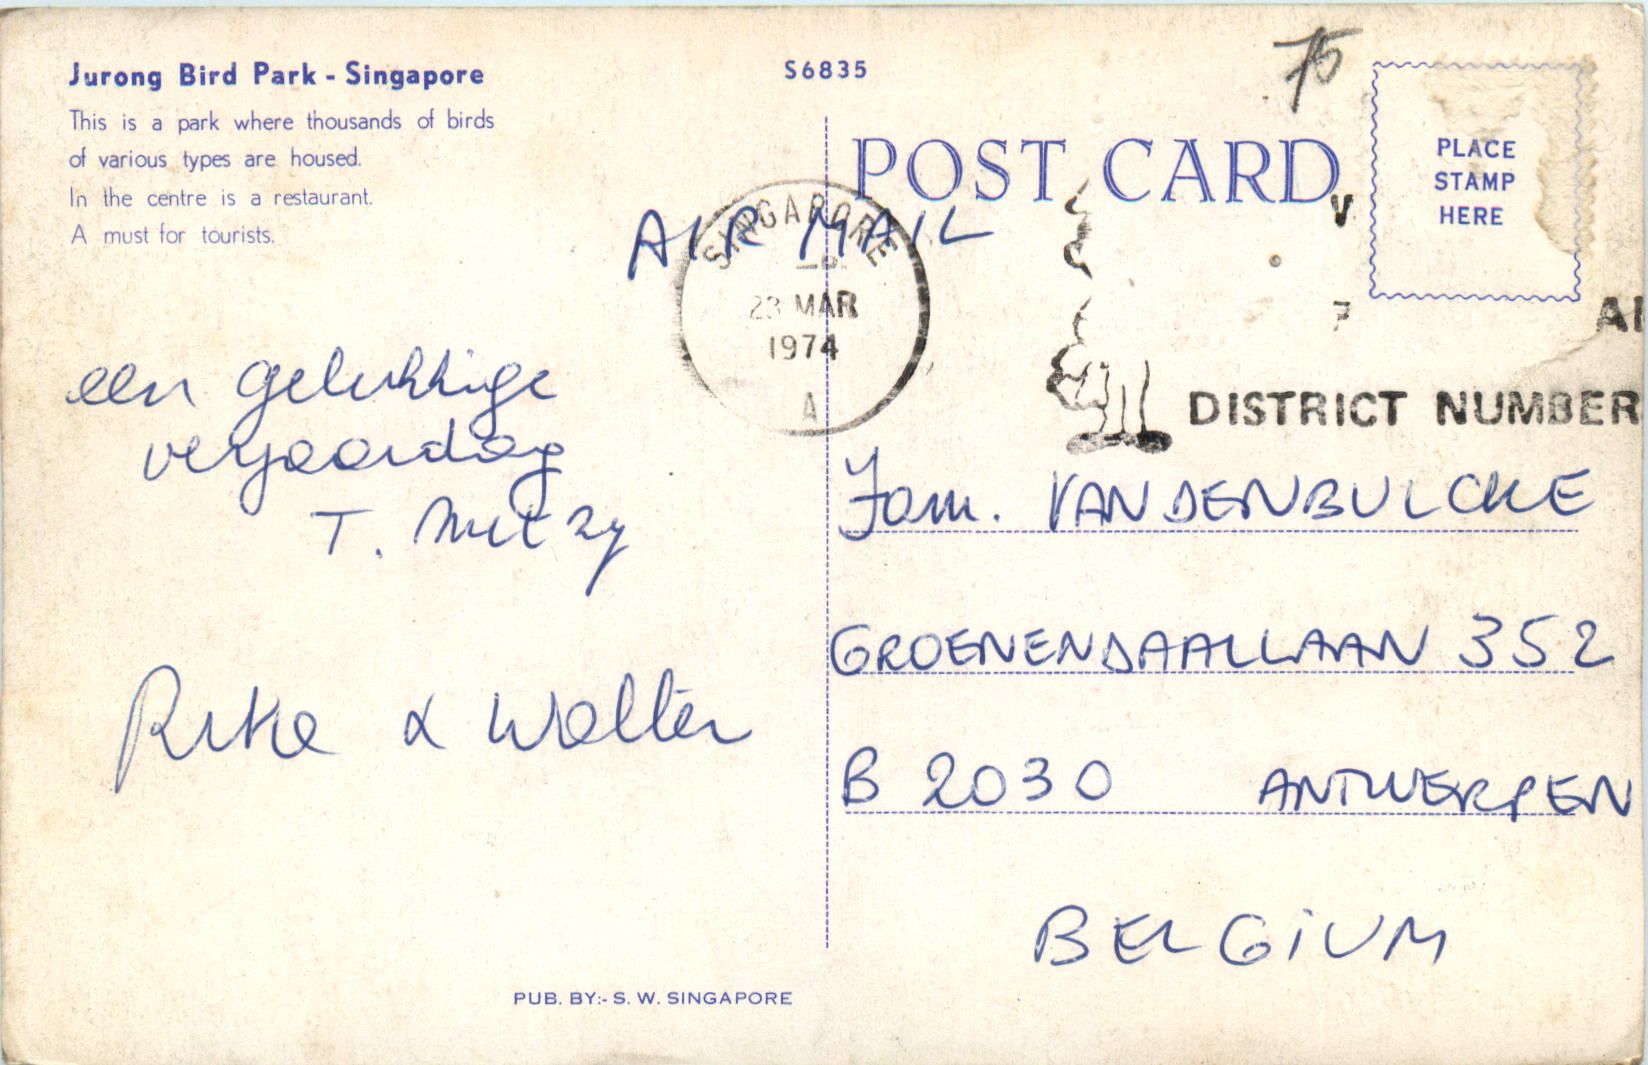 Jurong Bird Park - Singapore
This is a park where thousands of birds
of various types are housed.
In the centre is a restaurant.
A must for tourists.
S6835
75
POST CARD
PLACE
STAMP
HERE
AIR MAIL
SINGAPORE
23 MAR
1974
A
DISTRICT NUMBER
een gelukkige
verjaardag
T.
Rike & Walter
Fam. VANDENBULCKE
GROENENDAALLAAN 352
B 2030 ANTWERPEN
BELGIUM
PUB. BY:- S. W. SINGAPORE